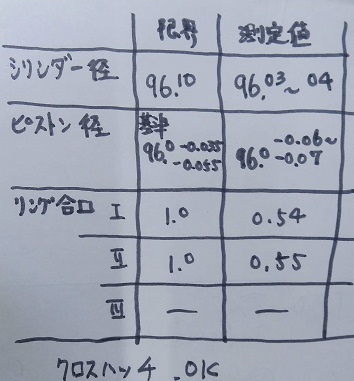 限界 測定値
シリンダー径 96.10 96.03~04
ピストン径 基準 96.0 -0.035 -0.055 96.0 -0.06~ -0.07
リング合口 I 1.0 0.54
II 1.0 0.55
III — —
クロスハッチ .OK